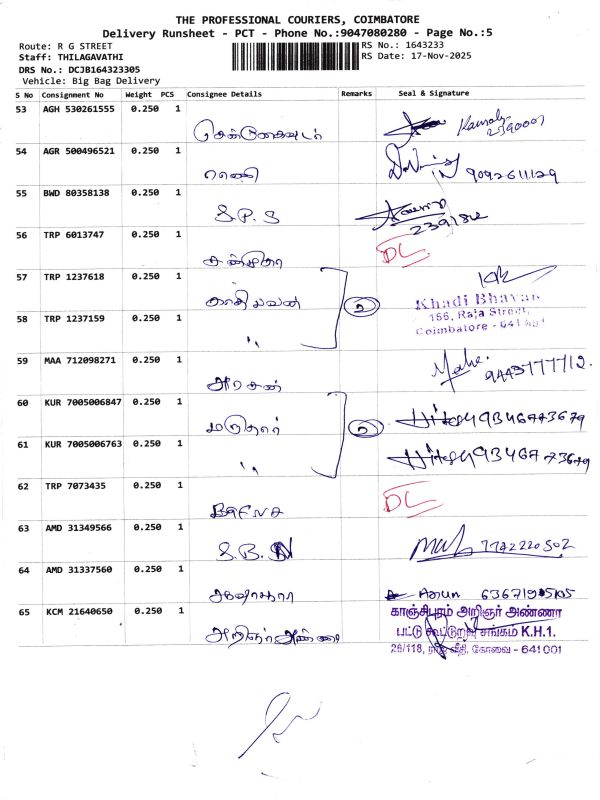 THE PROFESSIONAL COURIERS, COIMBATORE
Delivery Runsheet - PCT - Phone No.:9047080280 - Page No.:5
Route: R G STREET RS No.: 1643233
Staff: THILAGAVATHI RS Date: 17-Nov-2025
DRS No.: DCJB164323305
Vehicle: Big Bag Delivery
S No Consignment No Weight PCS Consignee Details Remarks Seal & Signature
53 AGH 530261555 0.250 1
54 AGR 500496521 0.250 1
ராணி 9092611129
55 BWD 80358138 0.250 1
S.P.S
239182
56 TRP 6013747 0.250 1
DL
57 TRP 1237618 0.250 1
காதிபவன் 2 Khadi Bhavan
58 TRP 1237159 0.250 1 166, Raja Street,
" Coimbatore - 641 001
59 MAA 712098271 0.250 1
அரசன் 9443777712.
60 KUR 7005006847 0.250 1
மருதூர் 2 Hitesh 9346773679
61 KUR 7005006763 0.250 1
" Hitesh 9346773679
62 TRP 7073435 0.250 1
DL
63 AMD 31349566 0.250 1
S.B. 7742220502
64 AMD 31337560 0.250 1
Arun
65 KCM 21640650 0.250 1 காஞ்சிபுரம் அறிஞர் அண்ணா
அறிஞர் அண்ணா பட்டு கூட்டுறவு சங்கம் K.H.1.
26/118, ராஜ வீதி, கோவை - 641001